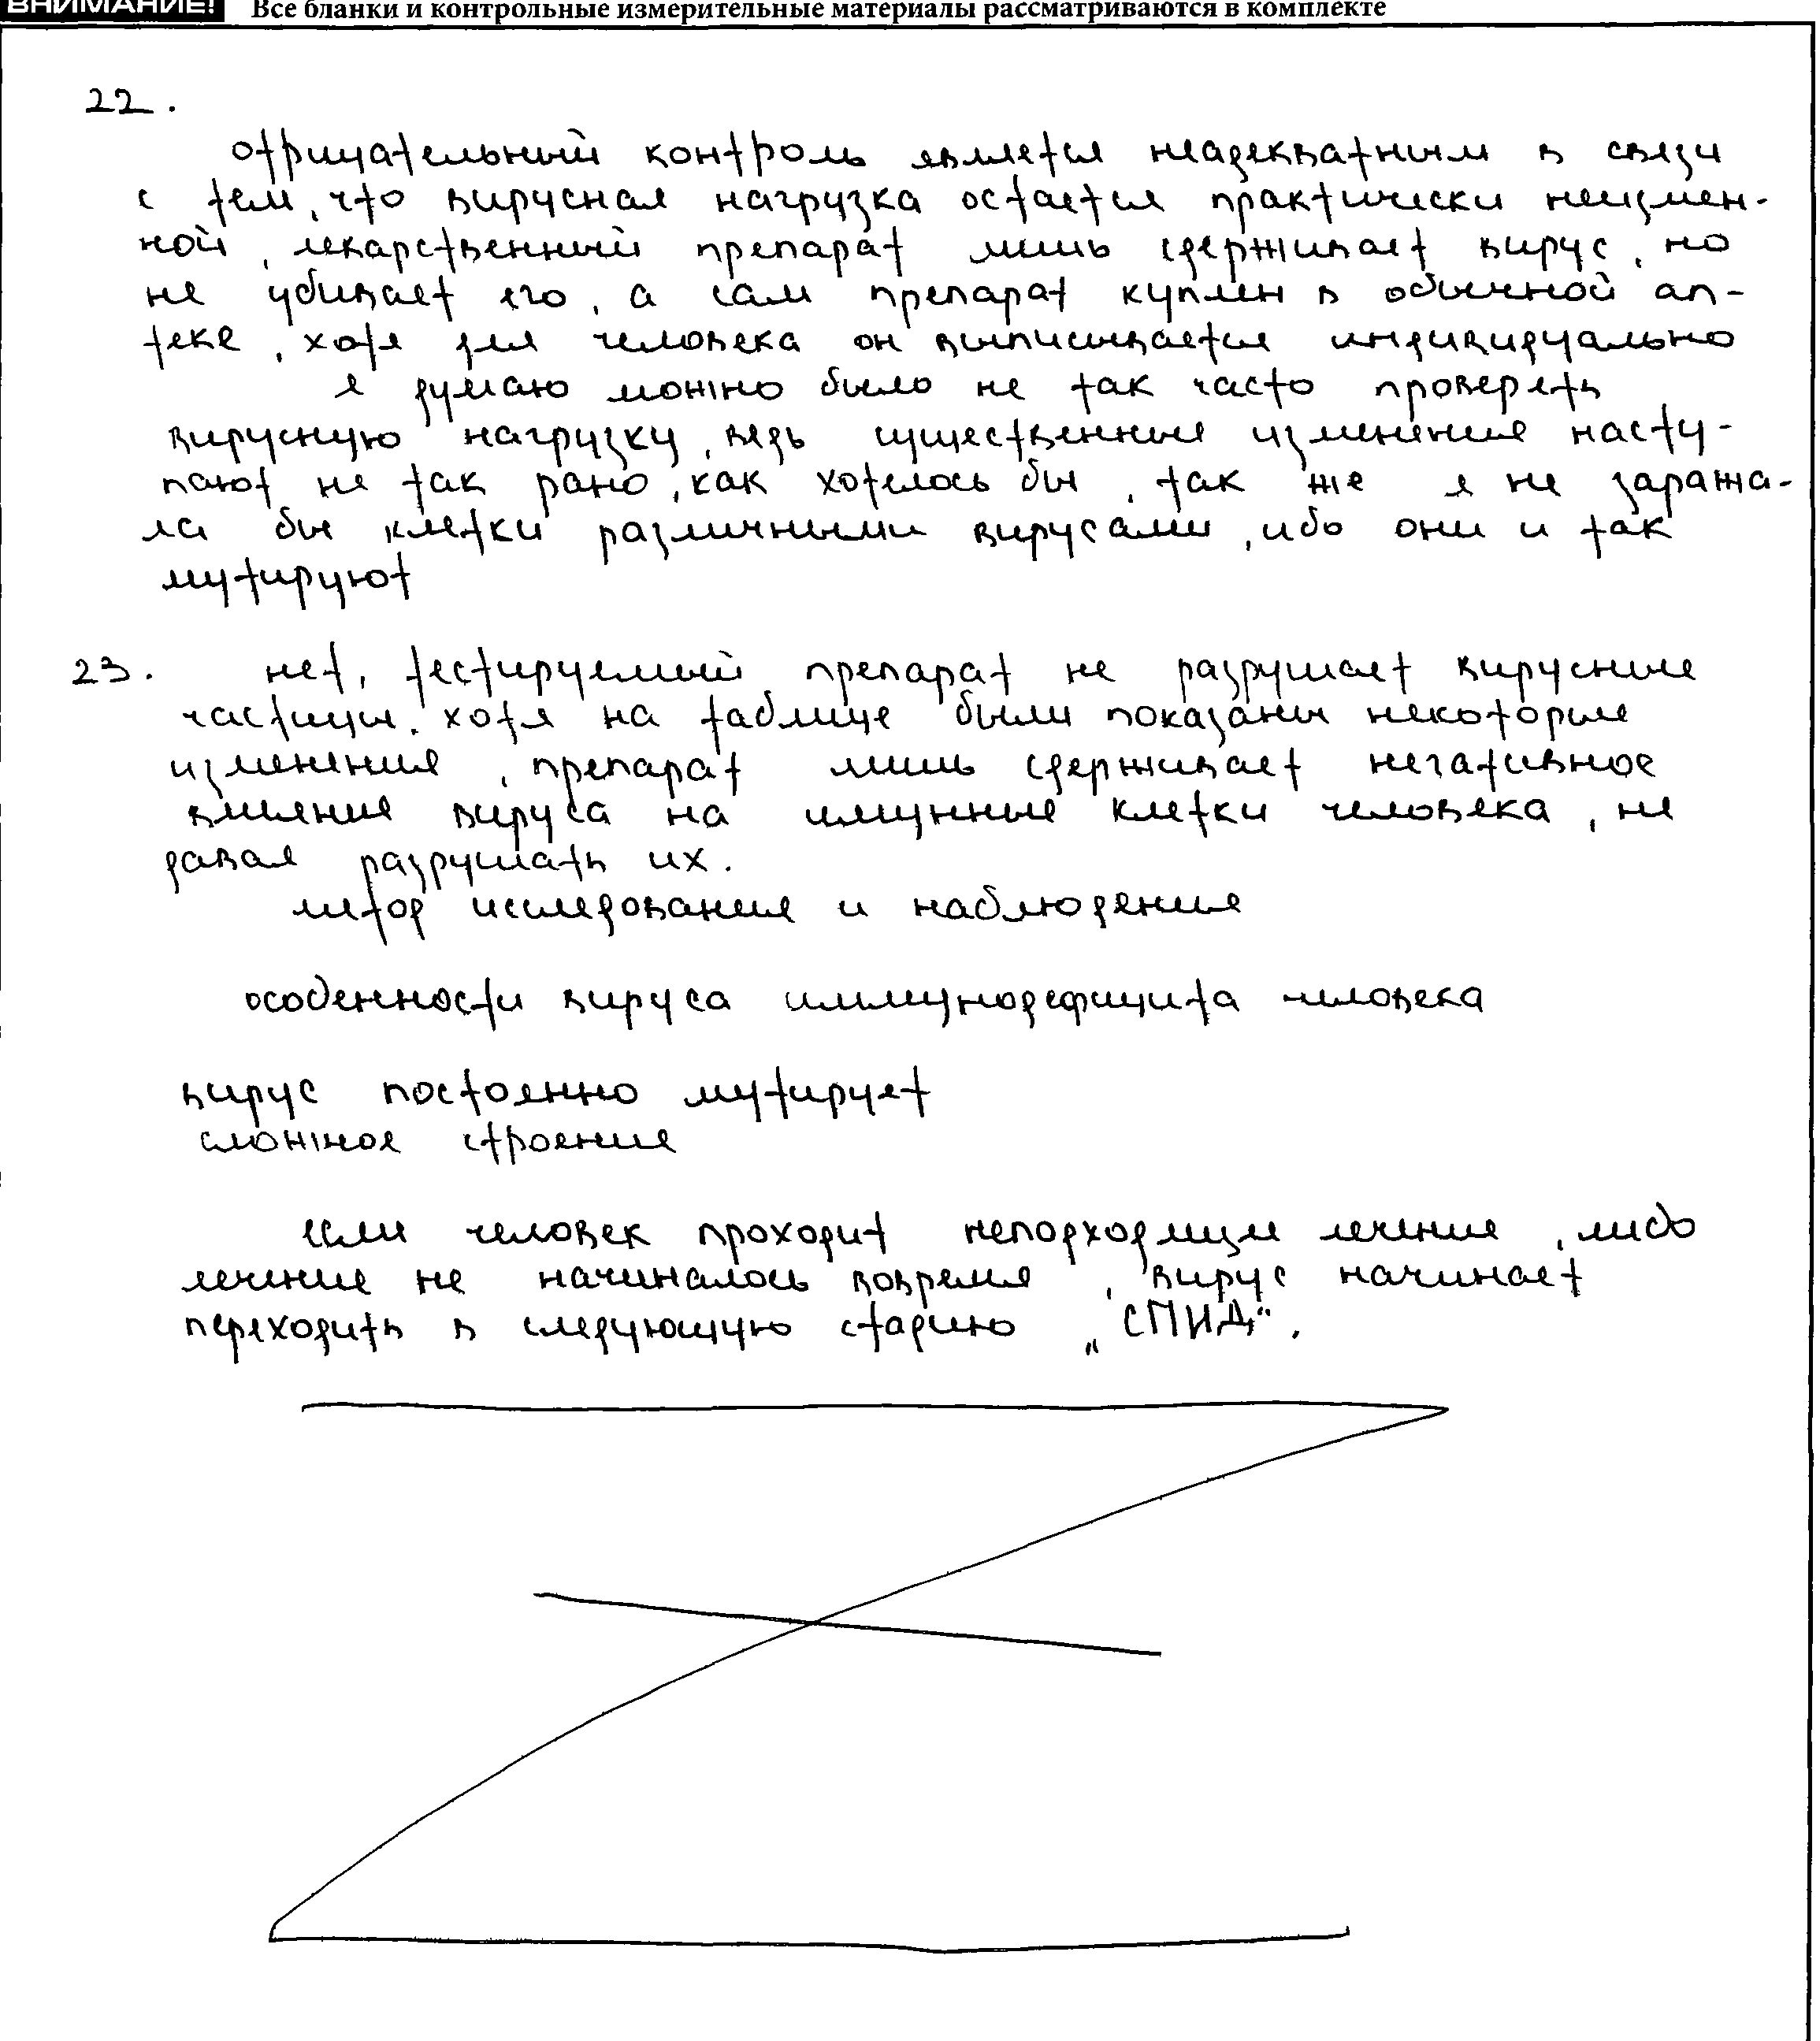 ВНИМАНИЕ! Все бланки и контрольные измерительные материалы рассматриваются в комплекте
22.
отрицательный контроль является неадекватным в связи
с тем, что вирусная нагрузка остается практически неизмен-
ной, лекарственный препарат лишь сдерживает вирус, но
не убивает его, а сам препарат куплен в обычной ап-
теке, хотя для человека он выписывается индивидуально
я думаю можно было не так часто проверять
вирусную нагрузку, ведь существенные изменения насту-
пают не так рано, как хотелось бы, так же я не заража-
ла бы клетки различными вирусами, ибо они и так
мутируют
23. нет, тестируемый препарат не разрушает вирусные
частицы. хотя на таблице были показаны некоторые
изменения, препарат лишь сдерживает негативное
влияние вируса на имунные клетки человека, не
давая разрушать их.
митод исследования и наблюдения
особенности вируса иммунодефицита человека
вирус постоянно мутирует
сложное строение
если человек проходит неподходящее лечение, либо
лечение не начиналось вовремя, вирус начинает
переходить в следующую стадию „СПИД“.